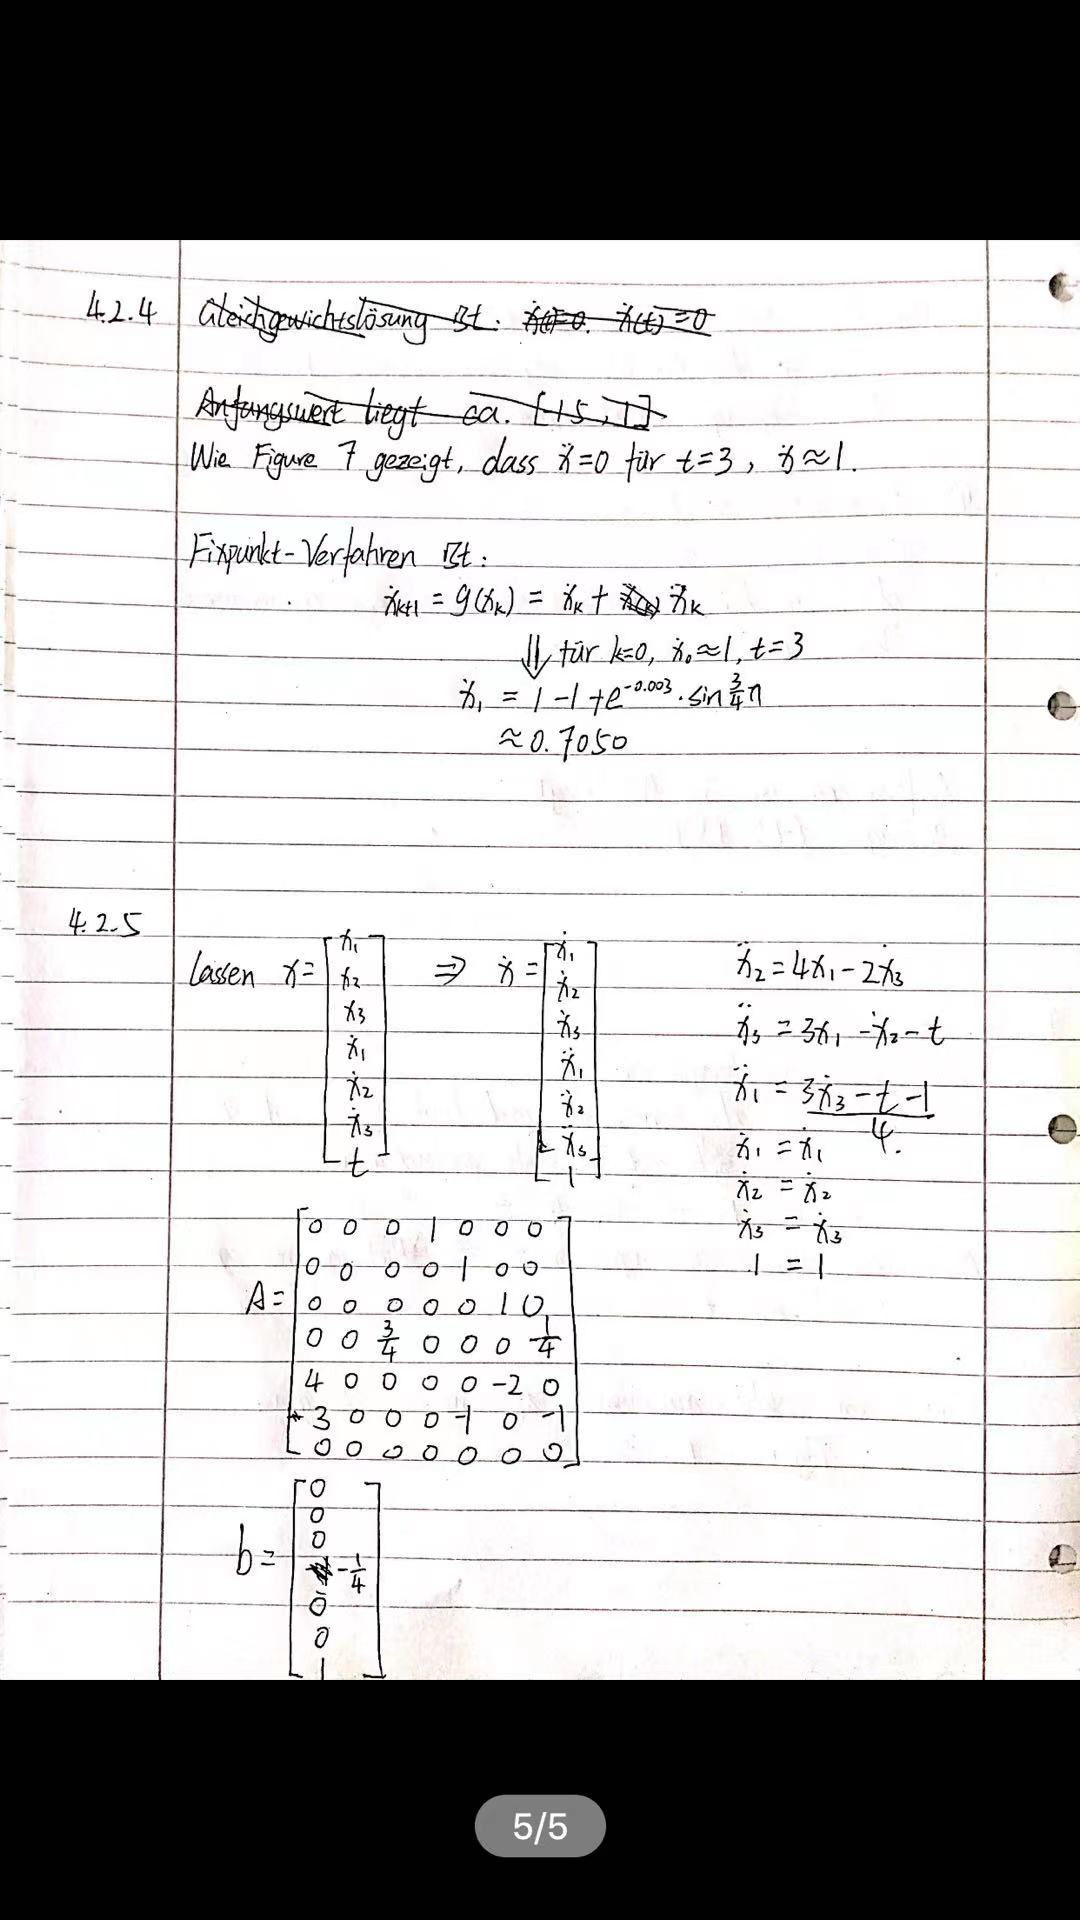 4.2.4 Gleichgewichtslösung ist: ẋ(t)=0. ẍ(t)=0
Anfangswert liegt ca. [1.5, 1]
Wie Figure 7 gezeigt, dass ẍ=0 für t=3, ẋ≈1.
Fixpunkt-Verfahren ist:
ẋₖ₊₁ = g(ẋₖ) = ẋₖ + ẍₖ
⇓ für k=0, ẋ₀≈1, t=3
ẋ₁ = 1-1+e^-0.003 · sin 3/4 π
≈0.7050
4.2.5
Lassen x = [x₁ x₂ x₃ ẋ₁ ẋ₂ ẋ₃ t] ⇒ ẋ = [ẋ₁ ẋ₂ ẋ₃ ẍ₁ ẍ₂ ẍ₃ 1]
ẍ₂ = 4x₁ - 2ẋ₃
ẍ₃ = 3x₁ - ẋ₂ - t
ẍ₁ = (3x₃ - t - 1)/4.
ẋ₁ = ẋ₁
ẋ₂ = ẋ₂
ẋ₃ = ẋ₃
1 = 1
A =
0 0 0 1 0 0 0
0 0 0 0 1 0 0
0 0 0 0 0 1 0
0 0 3/4 0 0 0 -1/4
4 0 0 0 0 -2 0
3 0 0 0 -1 0 -1
0 0 0 0 0 0 0
b =
0
0
0
-1/4
0
0
1
5/5